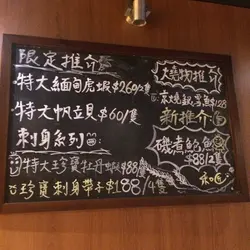 限定推介
特大緬甸虎蝦$269/2隻
特大帆立貝$60/1隻
刺身系列
特大珍寶牡丹蝦$88/隻
珍寶刺身帶子$188/4隻
燒物推介
京燒銀鱈魚$128
新推介
磯煮鮑魚
$88/2隻